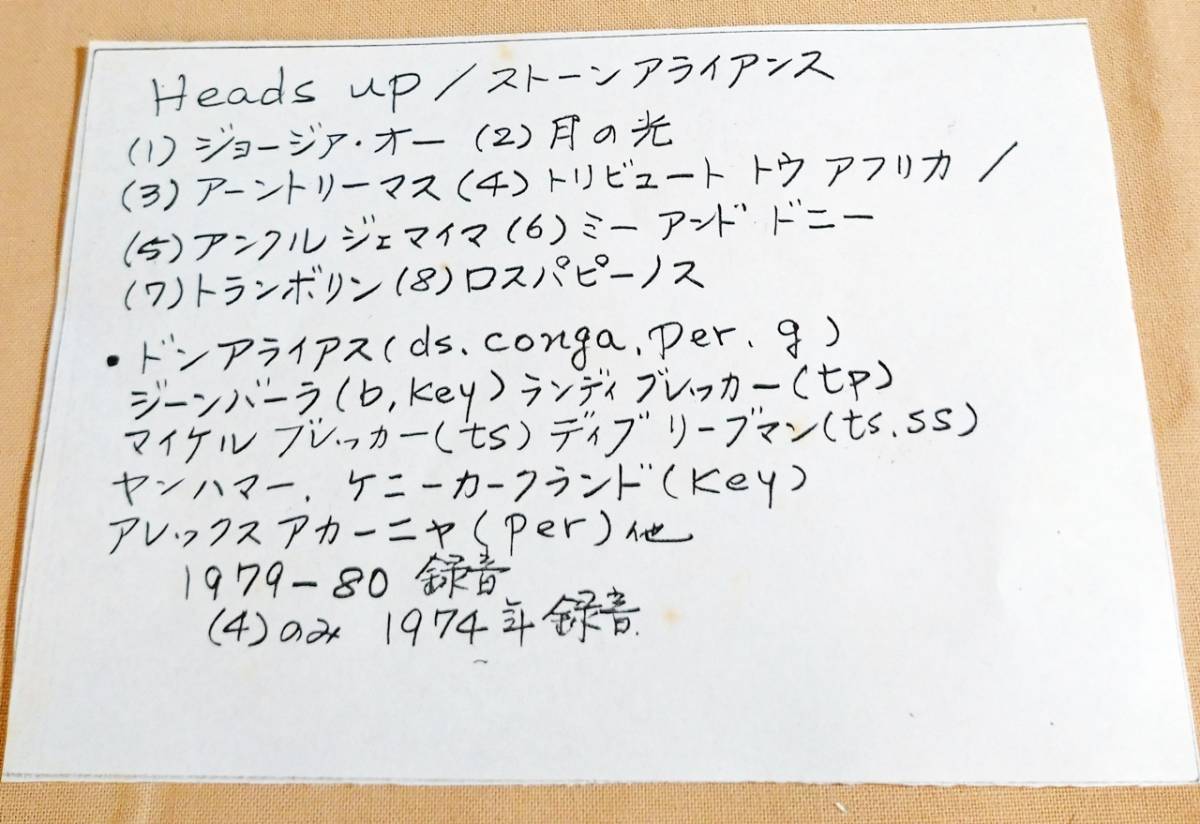 Heads up / ストーンアライアンス
(1) ジョージア・オー (2) 月の光
(3) アーントリーマス (4) トリビュート トウ アフリカ /
(5) アンクル ジェマイマ (6) ミー アンド ドニー
(7) トランボリン (8) ロスパピーノス
• ドンアライアス (ds. conga. per. g)
ジーンバーラ (b, key) ランディ ブレッカー (tp)
マイケル ブレッカー (ts) ディブ リーブマン (ts. ss)
ヤンハマー. ケニーカークランド (Key)
アレックス アカーニャ (per) 他
1979-80 録音
(4) のみ 1974年録音.